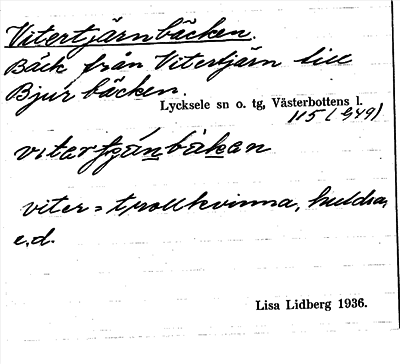 Vitertjärnbäcken.
Bäck från Vitertjärn till
Bjurbäcken.
Lycksele sn o. tg, Västerbottens l.
115 (949)
vitartjánbäkan
viter = trollkvinna, huldra,
e.d.
Lisa Lidberg 1936.